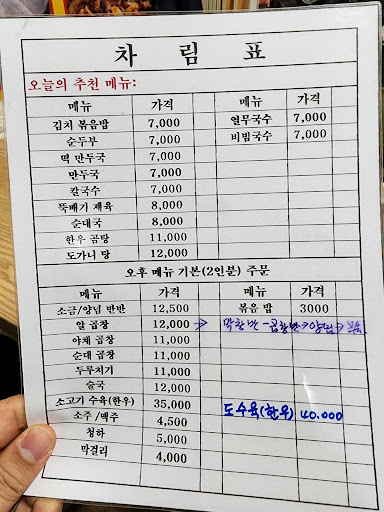 차 림 표
오늘의 추천 메뉴:
메뉴 가격 메뉴 가격
김치 볶음밥 7,000 열무국수 7,000
순두부 7,000 비빔국수 7,000
떡 만두국 7,000
만두국 7,000
칼국수 7,000
뚝배기 제육 8,000
순대국 8,000
한우 곰탕 11,000
도가니 탕 12,000
오후 메뉴 기본(2인분) 주문
메뉴 가격 메뉴 가격
소금/양념 반반 12,500 볶음 밥 3000
알 곱창 12,000
야채 곱창 11,000
순대 곱창 11,000
두루치기 11,000
술국 12,000
소고기 수육(한우) 35,000 도수육(한우) 40.000
소주 /맥주 4,500
청하 5,000
막걸리 4,000